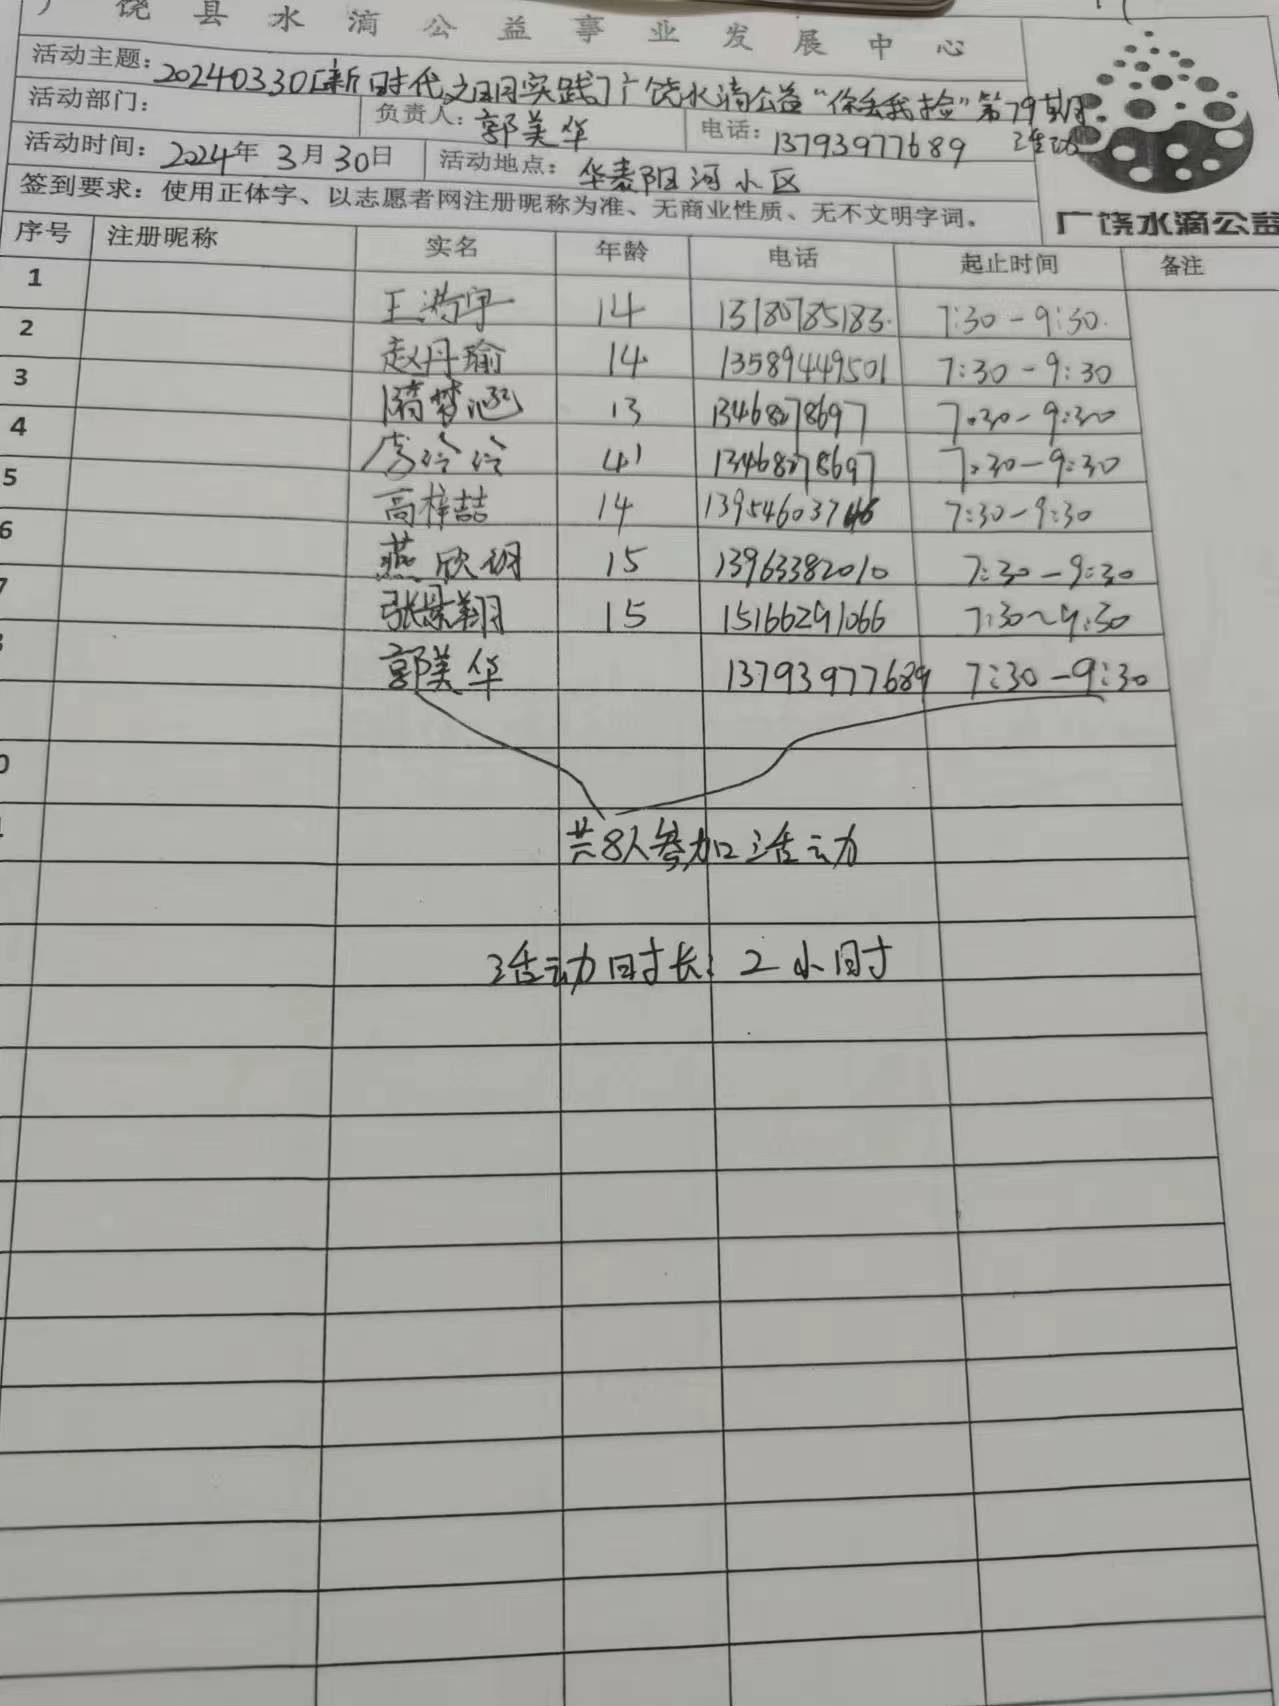 广饶县水滴公益事业发展中心
活动主题：20240330[新时代文明实践]广饶水滴公益“你丢我捡”第79期活动
活动部门： 负责人：郭美华 电话：13793977689
活动时间：2024年3月30日 活动地点：华泰阳河小区
签到要求：使用正体字、以志愿者网注册昵称为准、无商业性质、无不文明字词。
广饶水滴公益
序号 注册昵称 实名 年龄 电话 起止时间 备注
1 王浩宇 14 13180785183. 7:30-9:30.
2 赵丹瑜 14 13589449501 7:30-9:30
3 隋梦涵 13 13468278697 7:30-9:30
4 李玲玲 41 13468278697 7:30-9:30
5 高梓喆 14 13954603746 7:30-9:30
6 燕欣玥 15 13963382010 7:30-9:30
7 张景翔 15 15166291066 7:30~9:30
郭美华 13793977689 7:30-9:30
共8人参加活动
活动时长：2小时